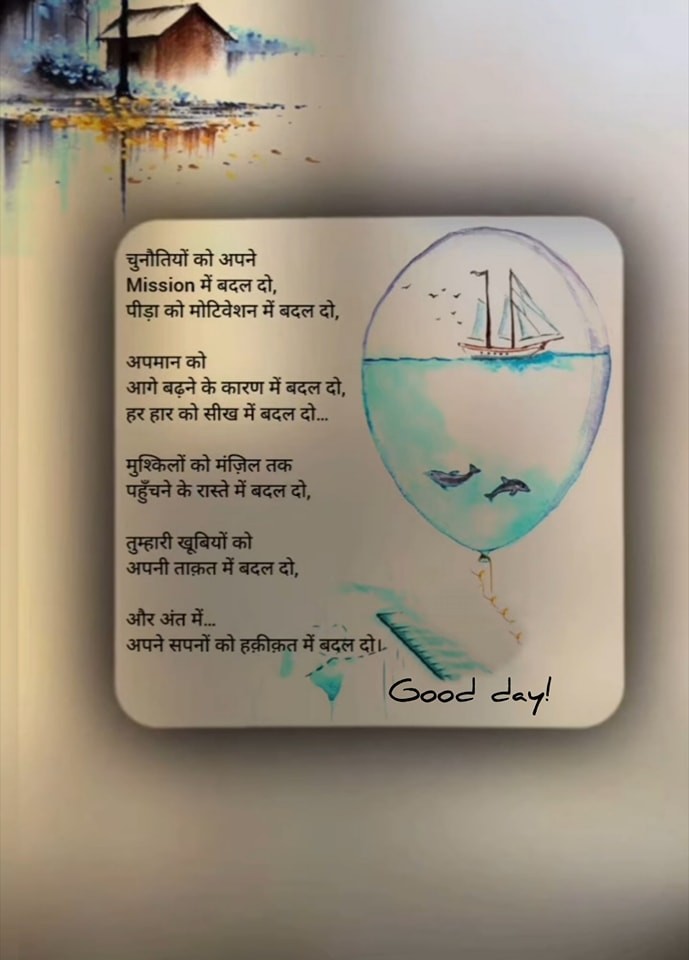 चुनौतियों को अपने
Mission में बदल दो,
पीड़ा को मोटिवेशन में बदल दो,
अपमान को
आगे बढ़ने के कारण में बदल दो,
हर हार को सीख में बदल दो...
मुश्किलों को मंज़िल तक
पहुँचने के रास्ते में बदल दो,
तुम्हारी खूबियों को
अपनी ताक़त में बदल दो,
और अंत में...
अपने सपनों को हक़ीक़त में बदल दो।
Good day!